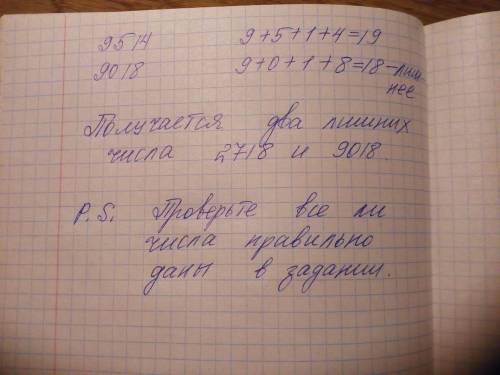 9514 9+5+1+4=19
9018 9+0+1+8=18-лиш
нее
Получается два лишних
числа 2718 и 9018.
P.S. Проверьте все ли
числа правильно
даны в задании.